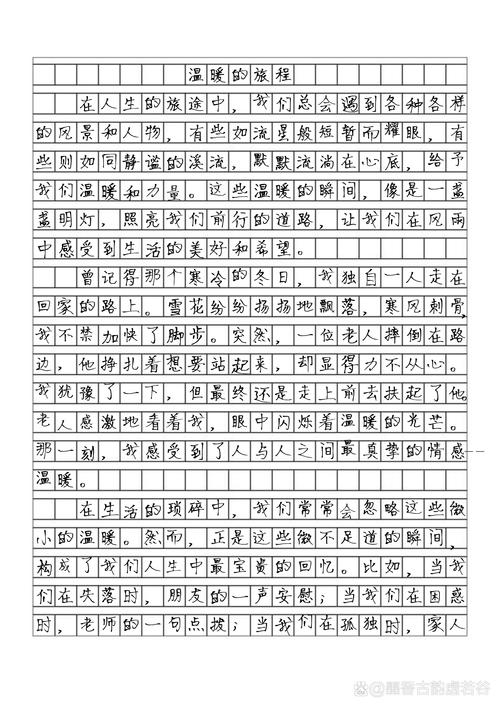 温暖的旅程
在人生的旅途中，我们总会遇到各种各样
的风景和人物，有些如流星般短暂而耀眼，有
些则如同静谧的溪流，默默流淌在心底，给予
我们温暖和力量。这些温暖的瞬间，像是一盏
盏明灯，照亮我们前行的道路，让我们在风雨
中感受到生活的美好和希望。
曾记得那个寒冷的冬日，我独自一人走在
回家的路上。雪花纷纷扬扬地飘落，寒风刺骨，
我不禁加快了脚步。突然，一位老人摔倒在路
边，他挣扎着想要站起来，却显得力不从心。
我犹豫了一下，但最终还是走上前去扶起了他。
老人感激地看着我，眼中闪烁着温暖的光芒。
那一刻，我感受到了人与人之间最真挚的情感——
温暖。
在生活的琐碎中，我们常常会忽略这些微
小的温暖。然而，正是这些微不足道的瞬间，
构成了我们人生中最宝贵的回忆。比如，当我
们在失落时，朋友的一声安慰；当我们在困惑
时，老师的一句点拨；当我们在孤独时，家人